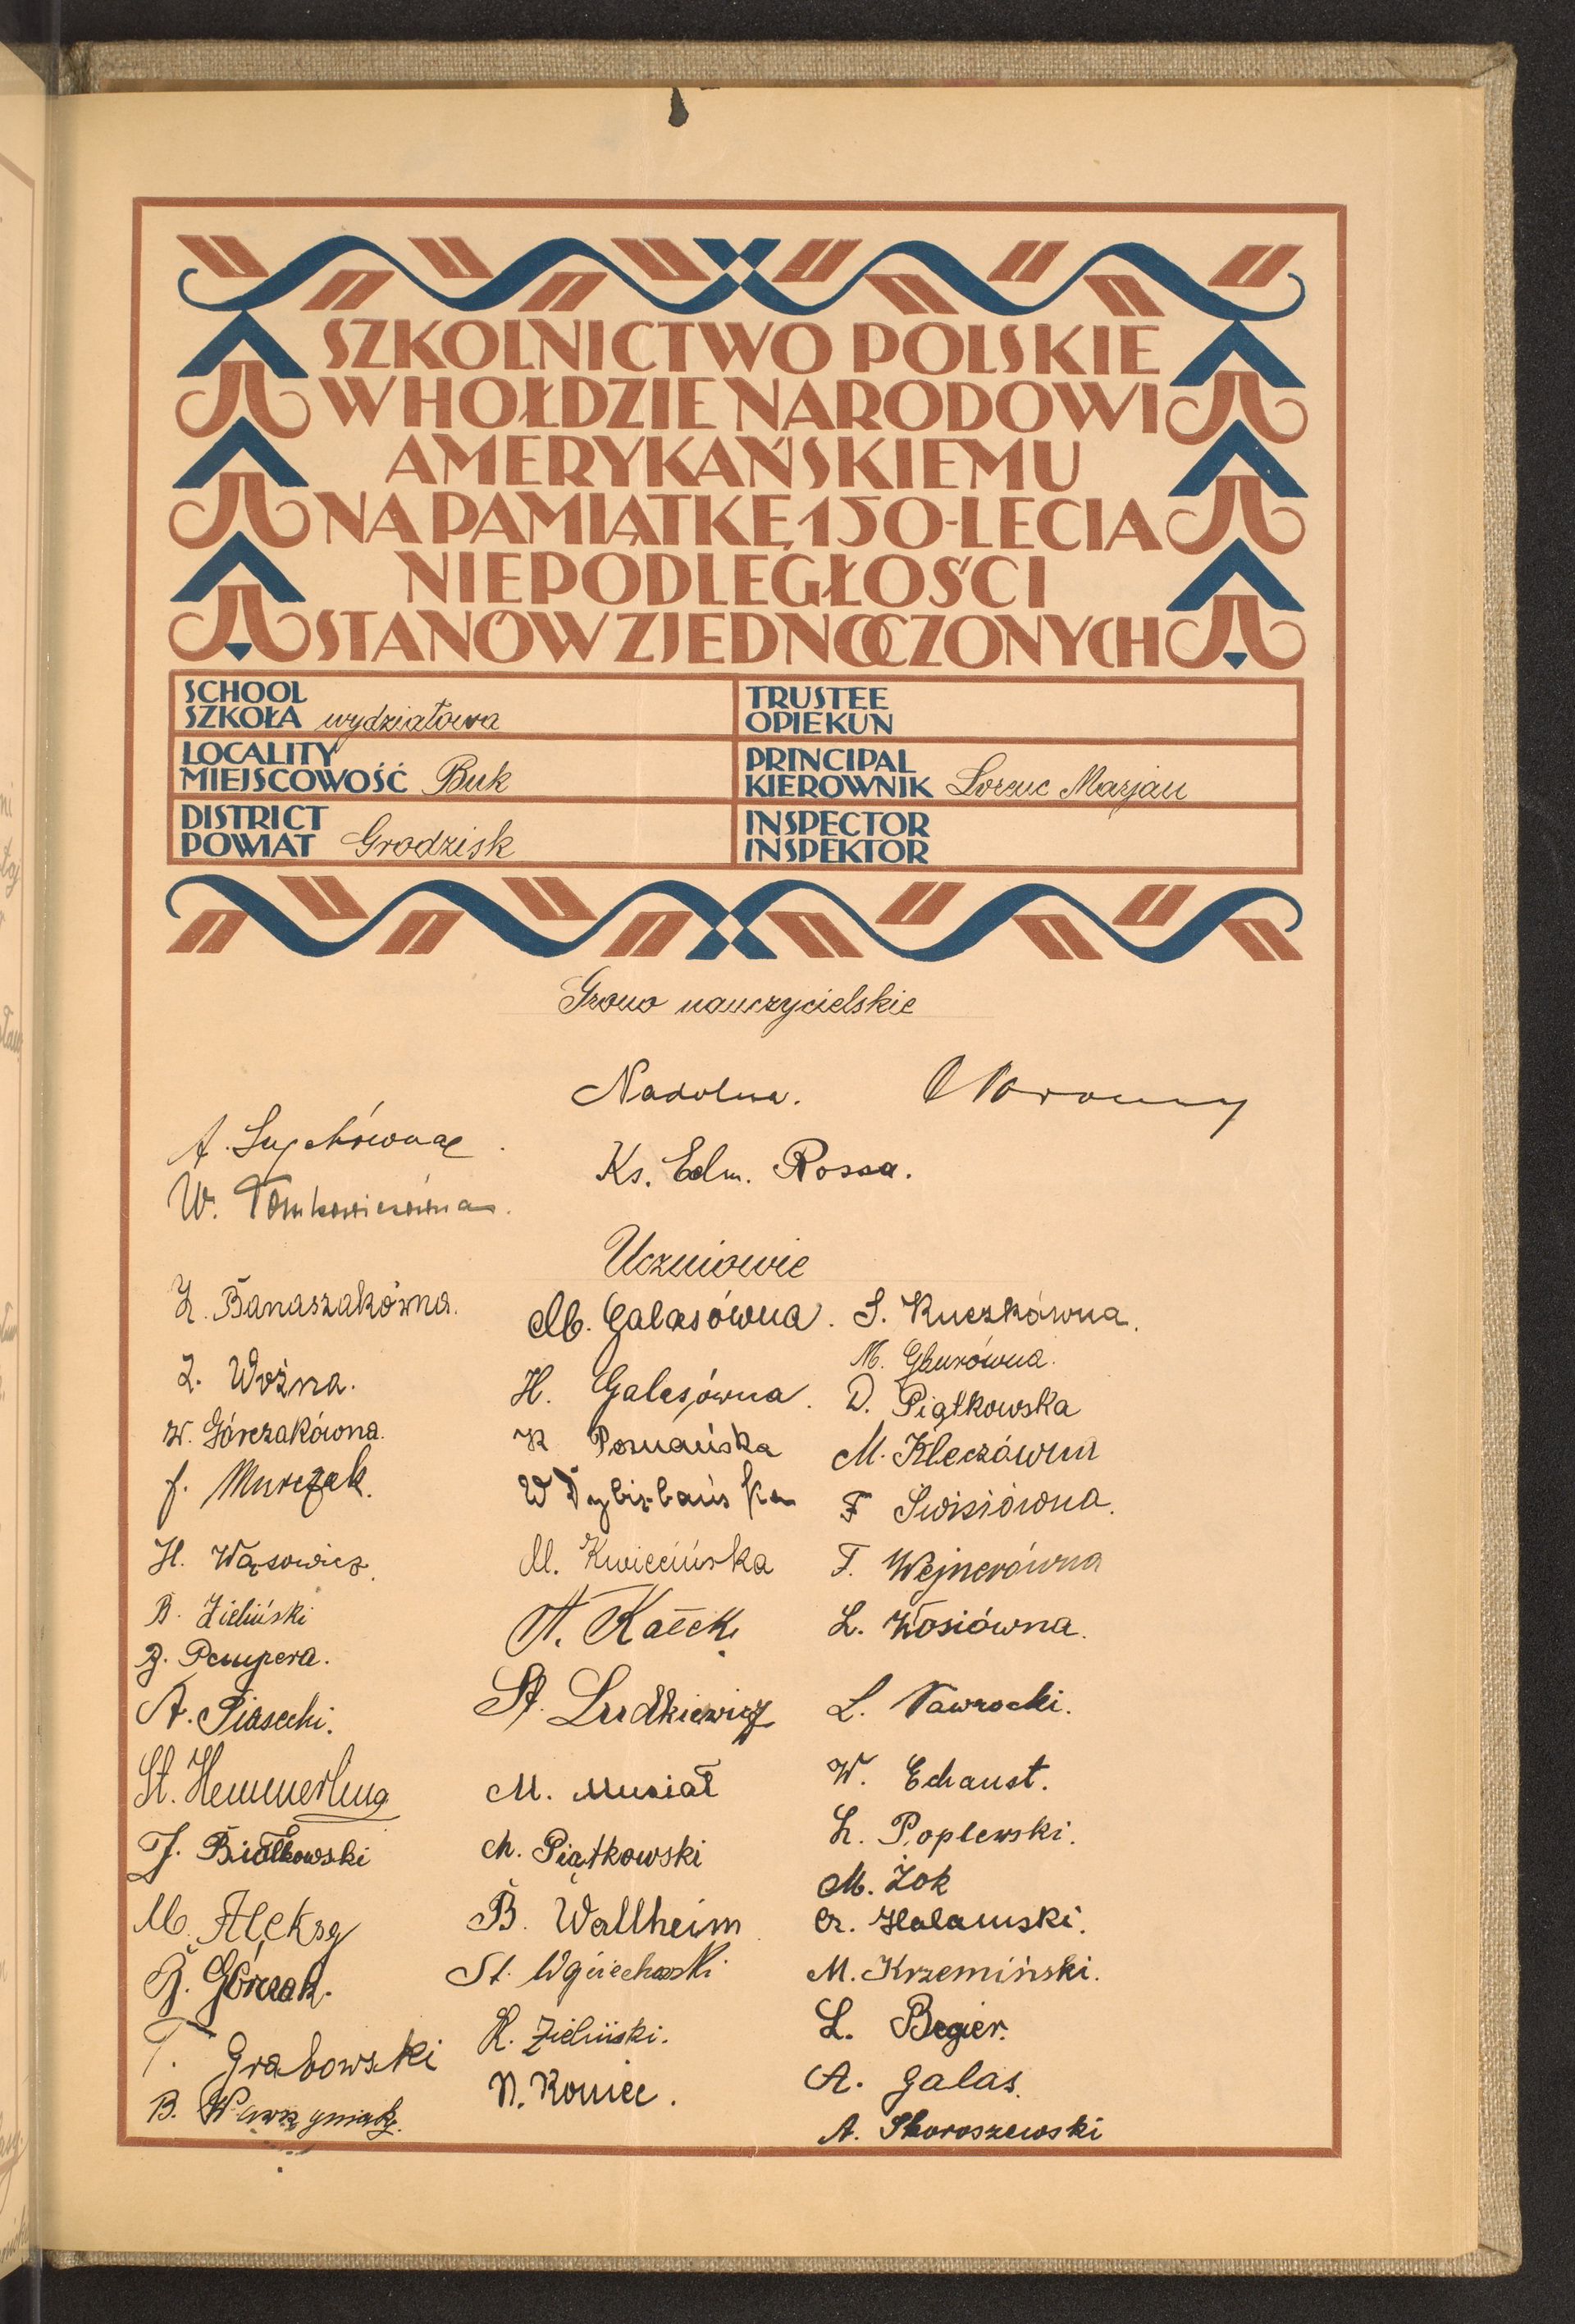 SZKOLNICTWO POLSKIE
W HOŁDZIE NARODOWI
AMERYKAŃSKIEMU
NA PAMIĄTKĘ 150-LECIA
NIEPODLEGŁOŚCI
STANÓW ZJEDNOCZONYCH
SCHOOL
SZKOŁA wydziałowa
TRUSTEE
OPIEKUN
LOCALITY
MIEJSCOWOŚĆ Buk
PRINCIPAL
KIEROWNIK Lorenc Marjan
DISTRICT
POWIAT Grodzisk
INSPECTOR
INSPEKTOR
Grono nauczycielskie
Nadolna.
A.
Ks. Edm. Rossa.
W. Tomkowiczówna.
Uczniowie
Banaszakówna.
Woźna.
W. Górczakówna.
Murczak.
H. Wąsowicz.
B. Zieliński
Pempera.
A. Piasecki.
St. Hemmerling
J. Białkowski
M. Aleksy
Górczak.
T. Grabowski
B. Wawrzyniak.
M. Galasówna.
H. Galasówna.
K Poznańska
W Dybizbańska
M. Kwiecińska
St. Ludkiewicz
M. Musiał
M. Piątkowski
B. Wallheim
St. Wojciechowski
K. Zieliński.
N. Koniec.
S. Kuczkówna.
M. Gburówna.
D. Piątkowska
M. Kleczówna
F
F. Wejnerówna
L. Kosiówna.
L. Nawrocki.
W. Echaust.
L. Poplewski.
M. Żok
Halamski.
M. Krzemiński.
L. Begier.
A. Galas.
A. Skoroszewski